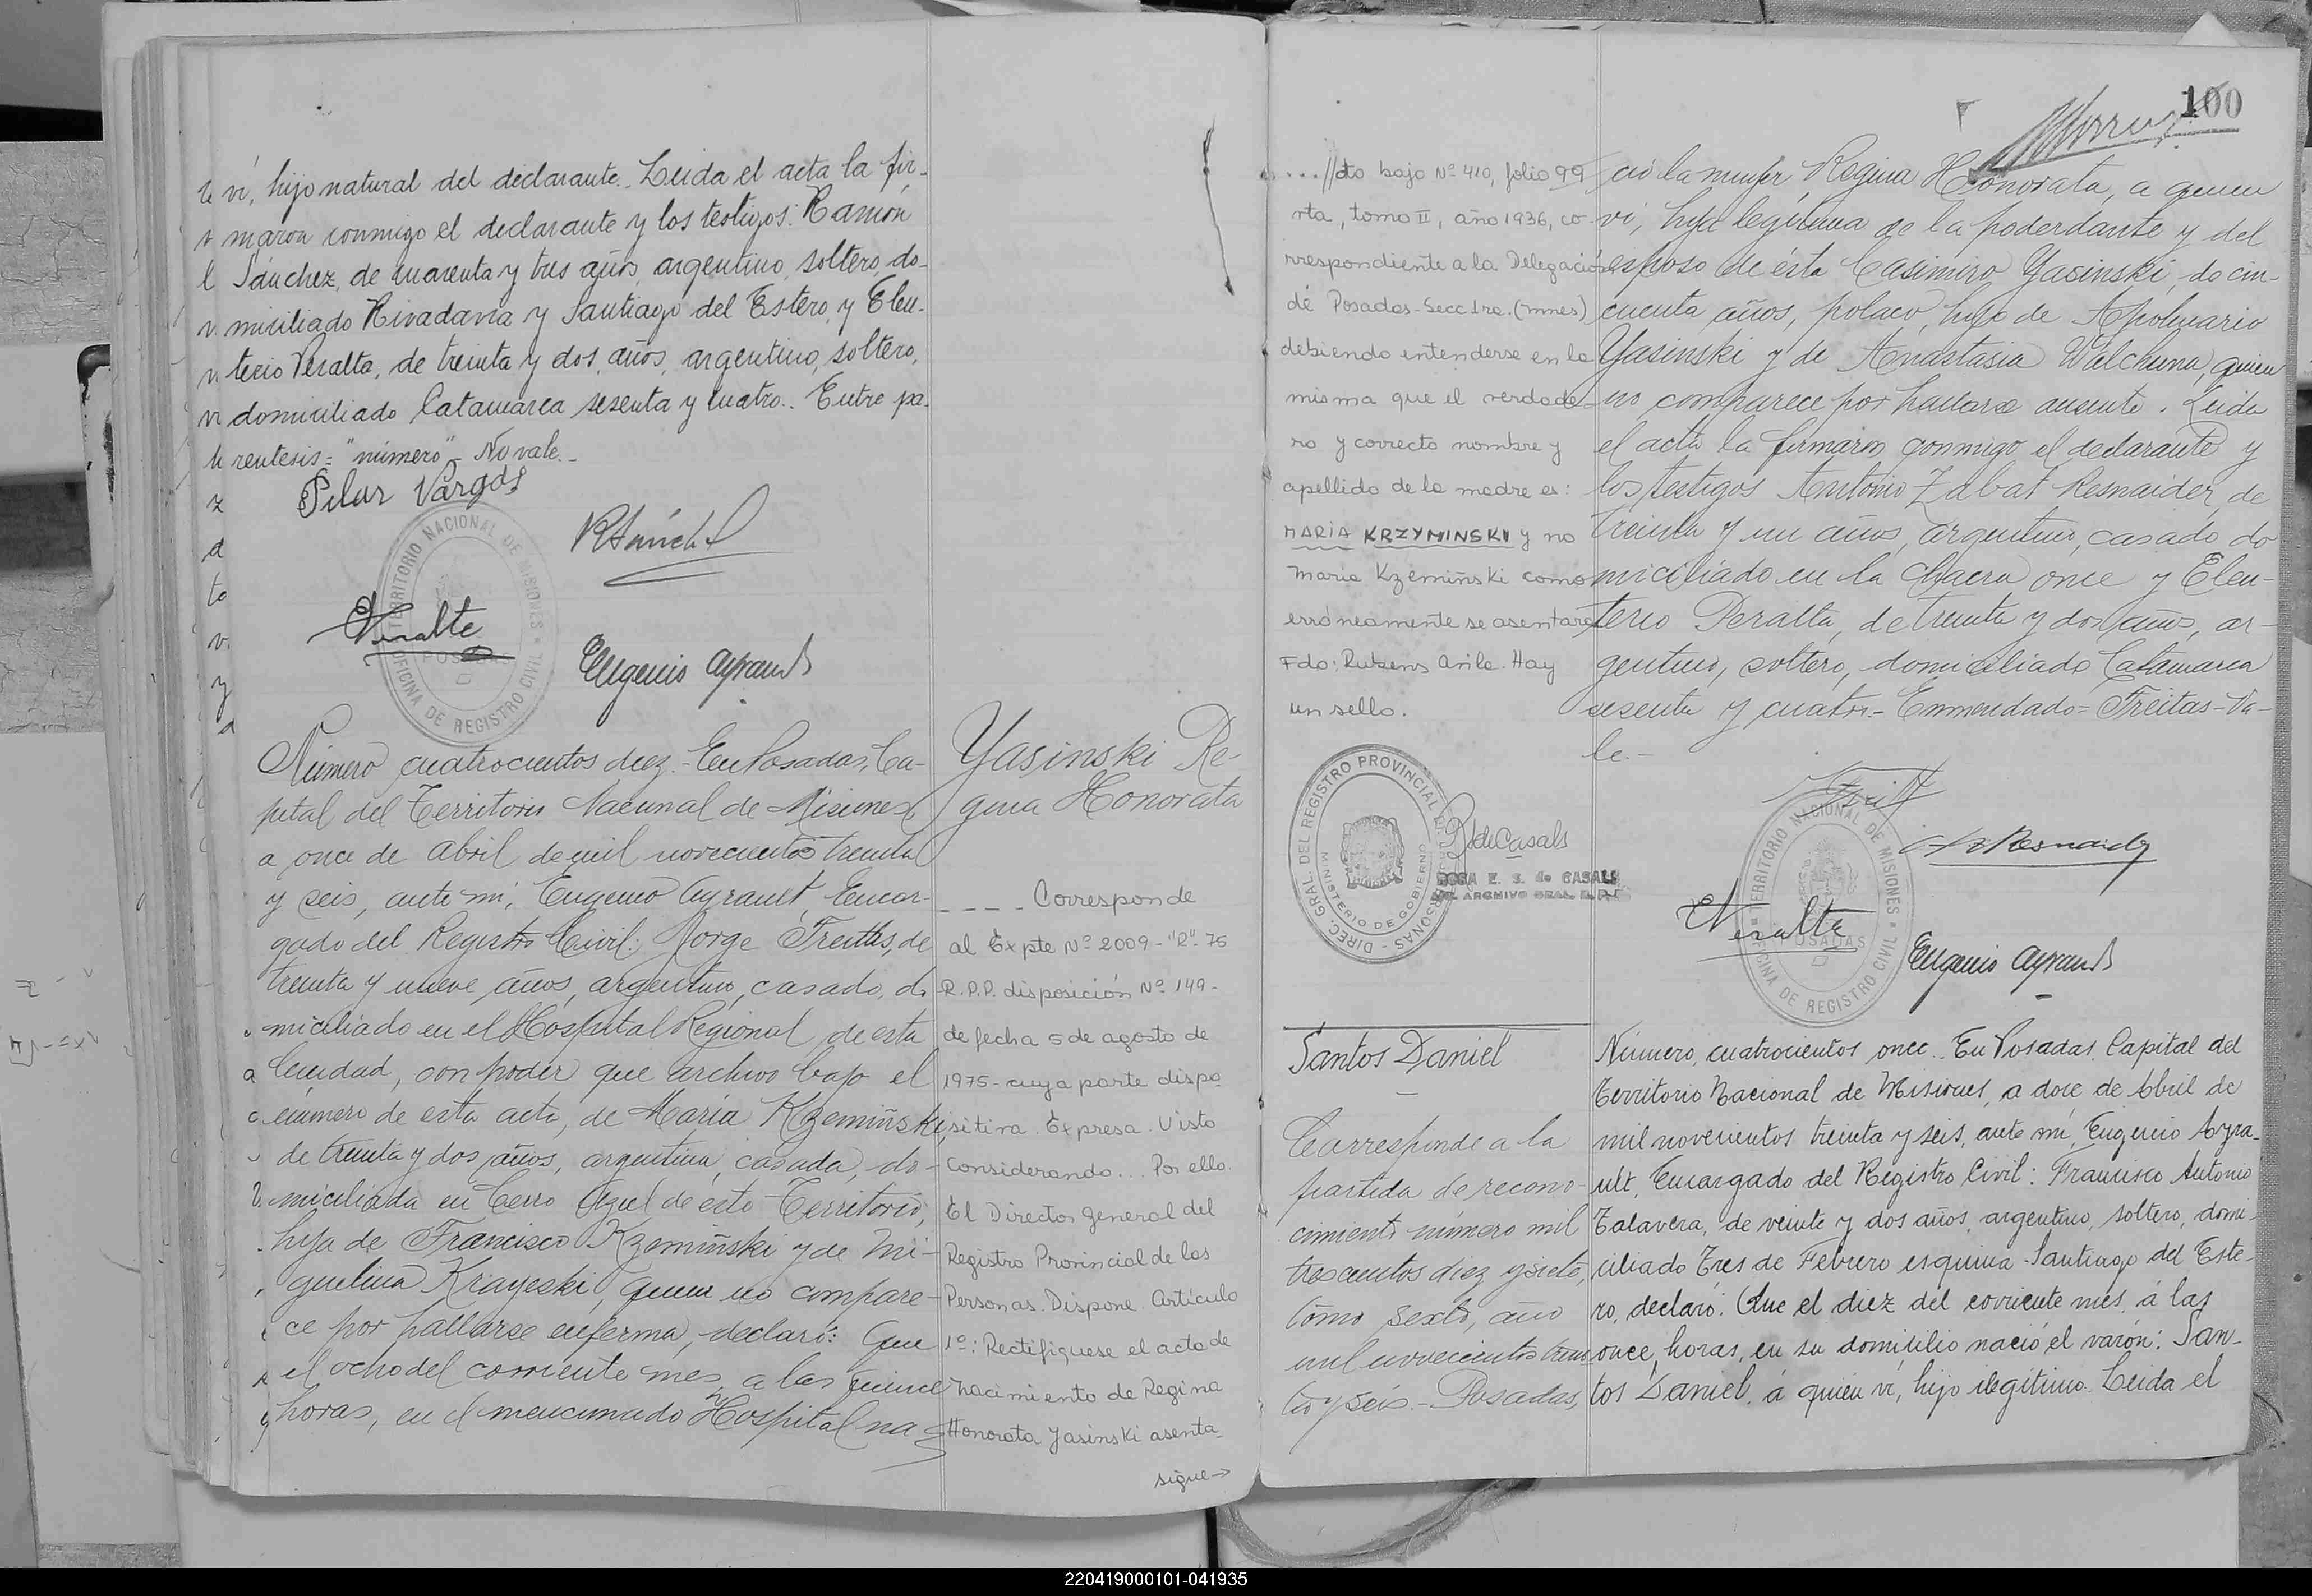 vi, hijo natural del declarante. Leida el acta la fir-
maron conmigo el declarante y los testigos: Ramón
Sánchez, de cuarenta y tres años, argentino, soltero, do-
miciliado Rivadavia y Santiago del Estero, y Eleu-
terio Peralta, de treinta y dos, años, argentino, soltero,
domiciliado Catamarca sesenta y cuatro.. Entre pa-
rentesis = "número" - No vale.-
Pilar Vargas
RSánchez
EPeralta
TERRITORIO NACIONAL DE MISIONES
OFICINA DE REGISTRO CIVIL
POSADAS
Eugenio Ayrault
Número cuatrocientos diez.- En Posadas, Ca-
pital del Territorio Nacional de Misiones
a once de Abril de mil novecientos treinta
y seis, ante mi, Eugenio Ayrault, Encar-
gado del Registro Civil: Jorge Freitas, de
treinta y nueve años, argentino, casado, do
miciliado en el Hospital Regional de esta
Ciudad, con poder que archivo bajo el
número de esta acta, de María Kzemiñski,
de treinta y dos años, argentina, casada, do-
miciliada en Cerro Azul de este Territorio,
hija de Francisco Kzemiñski y de Mi-
quelina Krayeski, quien no compare-
ce por hallarse enferma, declaró: Que
el ocho del corriente mes, a las quince
horas, en el mencionado Hospital na-
Yasinski Re-
gina Honorata
---- Corresponde
al Expte Nº 2009-"R"-75
R.P.P. disposición Nº 149-
de fecha 5 de agosto de
1975- cuya parte dispo
sitiva. Expresa. Visto
Considerando... Por ello.
El Director General del
Registro Provincial de las
Personas. Dispone. Artículo
1º: Rectifiquese el acta de
nacimiento de Regina
Honorata Yasinski asenta-
sigue→
100
...//da bajo Nº 410, folio 99
vta, tomo II, año 1936, co-
rrespondiente a la Delegación
de Posadas-Secc 1ra. (mnes)
debiendo entenderse en la
misma que el verdade-
ro y correcto nombre y
apellido de la madre es:
MARÍA KRZYMINSKI y no
Maria Kzemiñski como
erróneamente se asentara
Fdo: Rubens Avila. Hay
un sello.
DIREC. GRAL. DEL REGISTRO PROVINCIAL DE LAS PERSONAS -
MINISTERIO DE GOBIERNO
R S de Casals
ROSA E. S. de CASALS
ARCHIVO GRAL. R.P.P.
ció la mujer, Regina Honorata, a quien
vi, hija legítima de la poderdante y del
esposo de ésta Casimiro Yasinski, de cin-
cuenta años, polaco, hijo de Apolinario
Yasinski y de Anastasia Walchuna, quien
no comparece por hallarse ausente. Leida
el acta la firmaron conmigo el declarante y
los testigos Antonio Zabat Resnaider, de
treinta y un años, argentino, casado, do
miciliado en la Chacra once y Eleu-
terio Peralta, de treinta y dos años, ar-
gentino, soltero, domiciliado Catamarca
sesenta y cuatro.- Enmendado = Freitas - Va-
le.-
TERRITORIO NACIONAL DE MISIONES
OFICINA DE REGISTRO CIVIL
POSADAS
EPeralta
Eugenio Ayrault
Santos Daniel
Corresponde a la
partida de recono-
cimiento número mil
trescientos diez y siete,
tomo sexto, año
mil novecientos trein
ta y seis.- Posadas,
Número, cuatrocientos once. En Posadas, Capital del
Territorio Nacional de Misiones, a doce de Abril de
mil novecientos treinta y seis, ante mí, Eugenio Ayra-
ult, Encargado del Registro Civil: Francisco Antonio
Talavera, de veinte y dos años, argentino, soltero, domi-
ciliado Tres de Febrero esquina Santiago del Este-
ro, declaró: Que el diez del corriente mes, á las
once, horas, en su domicilio nació el varón: San-
tos Daniel, á quién ví, hijo ilegítimo. Leida el
220419000101-041935